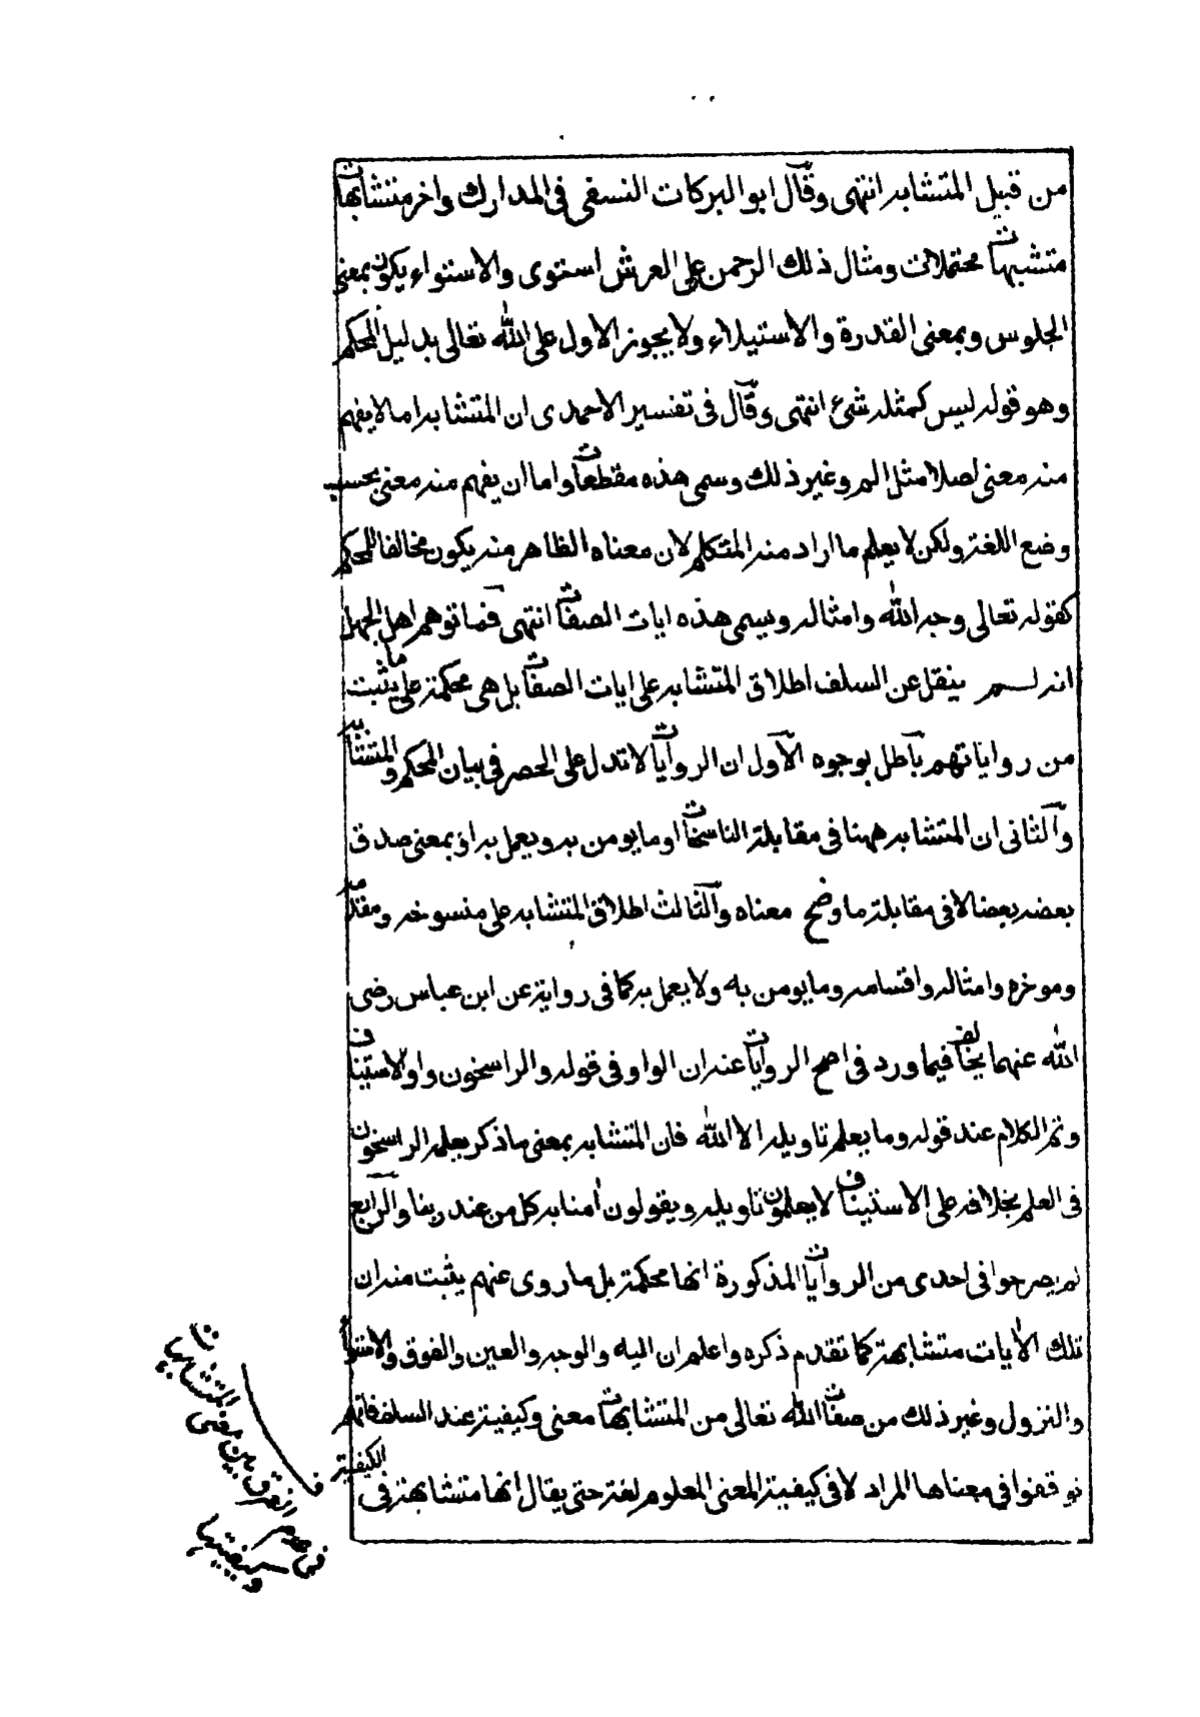 من قبيل المتشابه انتهى وقال ابو البركات النسفى فى المدارك واخر متشابهات
متشبهات محتملات ومثال ذلك الرحمن على العرش استوى والاستواء يكون بمعنى
الجلوس وبمعنى القدرة والاستيلاء ولا يجوز الاول على الله تعالى بدليل المحكم
وهو قوله ليس كمثله شئ انتهى وقال فى تفسير الاحمدى ان المتشابه اما لا يفهم
منه معنى اصلا مثل الم وغير ذلك وسمى هذه مقطعات واما ان يفهم منه معنى بحسب
وضع اللغة ولكن لا يعلم ما اراد منه المتكلم لان معناه الظاهر منه يكون مخالفا للمحكم
كقوله تعالى وجه الله وامثاله ويسمى هذه ايات الصفات انتهى فما توهم اهل الجهل
انه لم ينقل عن السلف اطلاق المتشابه على ايات الصفات بل هى محكمة على ما يثبت
من رواياتهم باطل بوجوه الاول ان الروايات لا تدل على الحصر فى بيان المحكم والمتشابه
والثانى ان المتشابه ههنا فى مقابلة الناسخات او ما يومن به ويعمل به او بمعنى صدق
بعضه بعضا لا فى مقابلة ما وضح معناه والثالث اطلاق المتشابه على منسوخه ومقدمه
وموخره وامثاله واقسامه وما يومن به ولا يعمل به كما فى رواية عن ابن عباس رضى
الله عنهما يخالف فيما ورد فى اصح الروايات عنه ان الواو فى قوله والراسخون واو الاستيناف
وتم الكلام عند قوله وما يعلم تاويله الا الله فان المتشابه بمعنى ما ذكر يعلمه الراسخون
فى العلم بخلافه على الاستيناف لا يعلمون تاويله ويقولون أمنا به كل من عند ربنا والرابع
لم يصرحوا فى احدى من الروايات المذكورة انها محكمة بل ما روى عنهم يثبت منه ان
تلك الأيات متشابهة كما تقدم ذكره واعلم ان اليه والوجه والعين والفوق والاستواء
والنزول وغير ذلك من صفات الله تعالى من المتشابهات معنى وكيفية عند السلف فانهم
توقفوا فى معناها المراد لا فى كيفية المعنى المعلوم لغة حتى يقال انها متشابهة فى الكيفية
ف
الفرق بين معنى المتشابهات
وكيفيتها